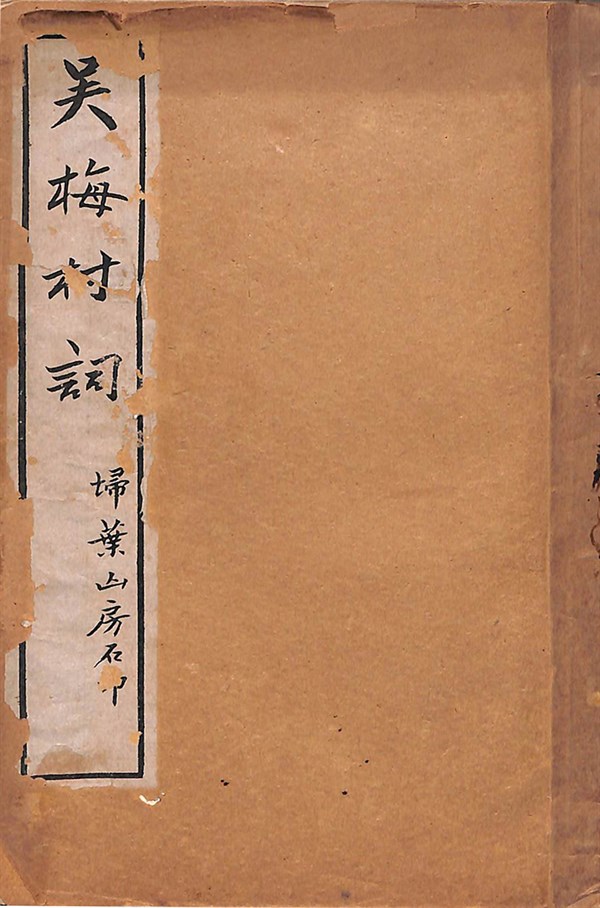 吴梅村詞
埽葉山房石印